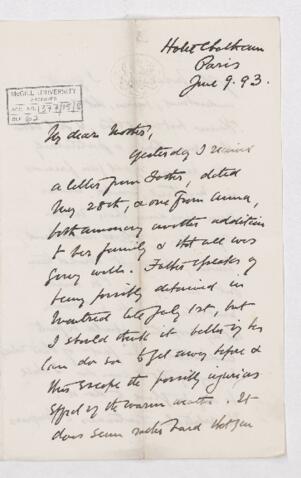 Hotel Chatham
Paris
June 9. 93.
McGILL UNIVERSITY
ARCHIVES
ACC. NO.
REF.
My dear Mother,
Yesterday I received
a letter from Father, dated
May 28th, & one from Anna,
both announcing another addition
to her family & that all was
going well. Father speaks of
being possibly detained in
Montreal till July 1st, but
I should think it better if he
can do so to get away before &
thus escape the possibly injurious
effect of the warm weather. It
does seem rather hard that you